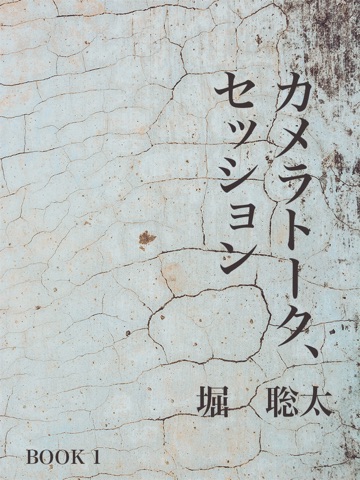 カメラトーク、
セッション
堀　聡太
BOOK 1